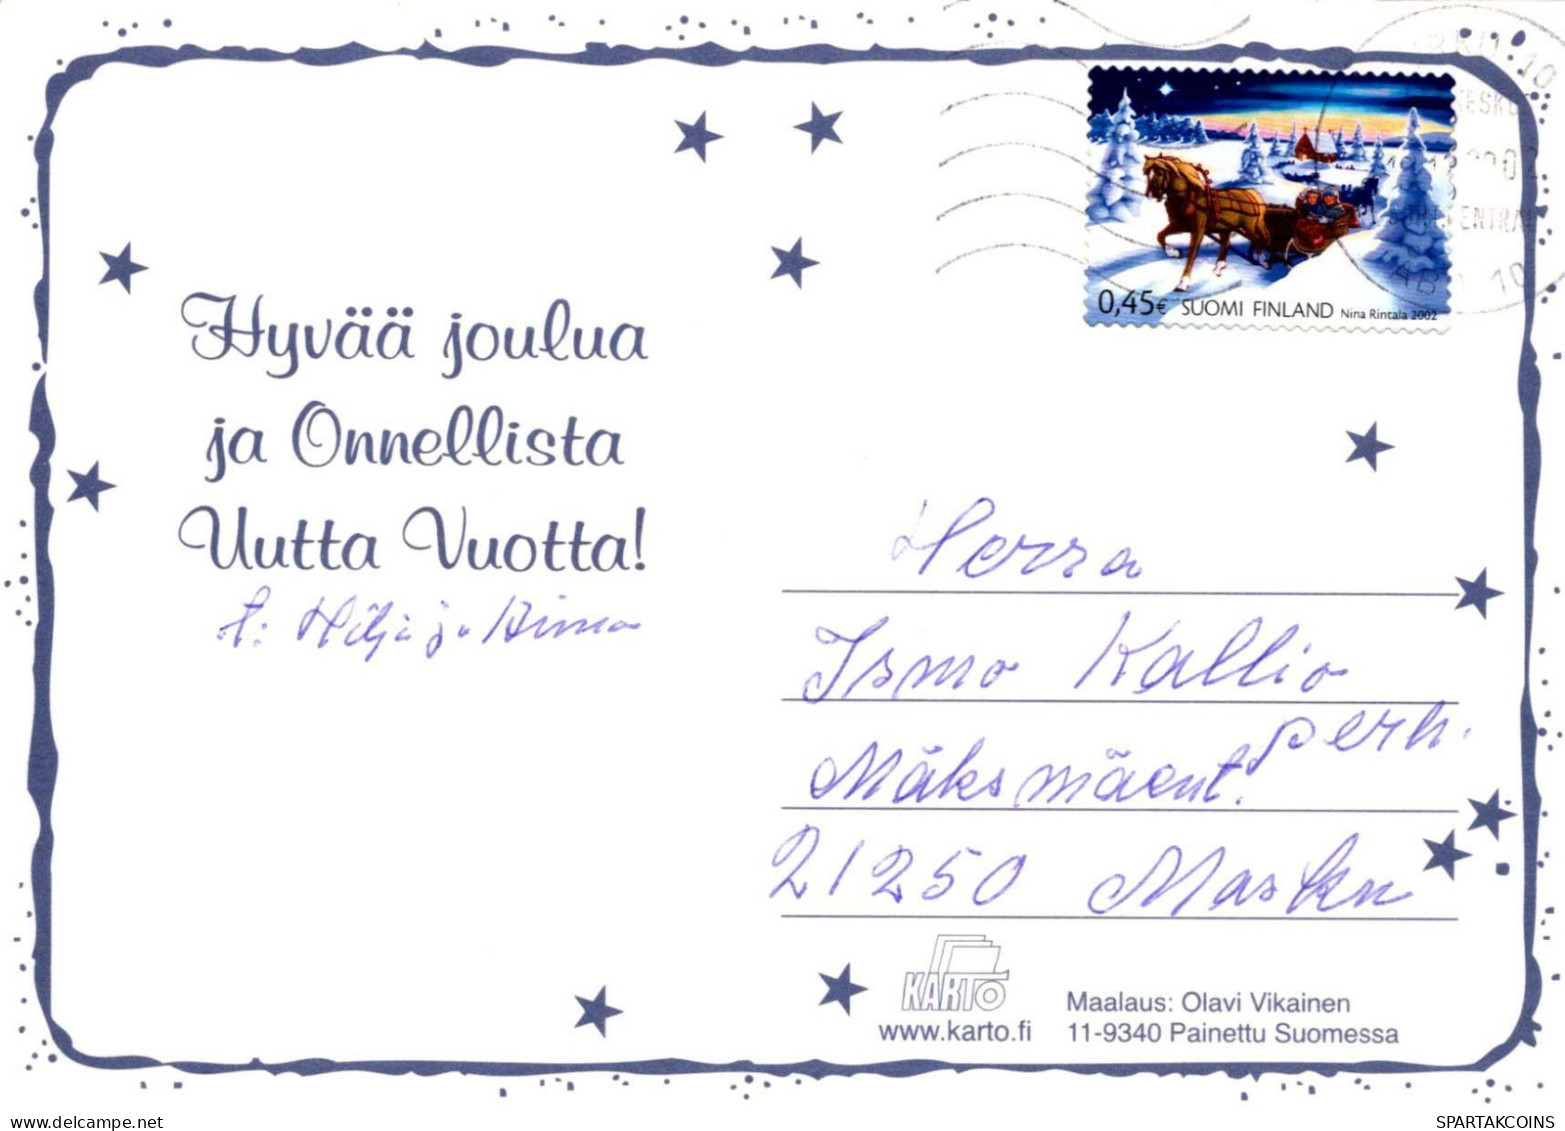 Hyvää joulua
ja Onnellista
Uutta Vuotta!
t: Hilja ja
0,45€ SUOMI FINLAND Nina Rintala 2002
ÅBO 10
Herra
Ismo Kallio
perh.
Mäksmäent.
21250 Masku
KARTO
www.karto.fi
Maalaus: Olavi Vikainen
11-9340 Painettu Suomessa
delcampe.net
SPARTAKCOINS